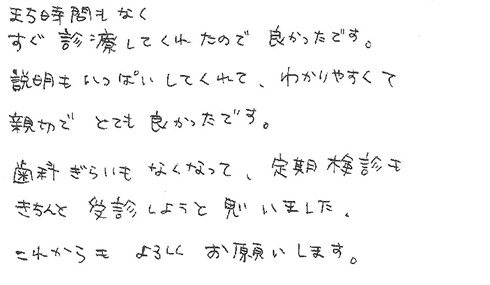 まち時間もなく
すぐ診療してくれたので良かったです。
説明もいっぱいしてくれて、わかりやすくて
親切でとても良かったです。
歯科ぎらいもなくなって、定期検診も
きちんと受診しようと思いました。
これからもよろしくお願いします。